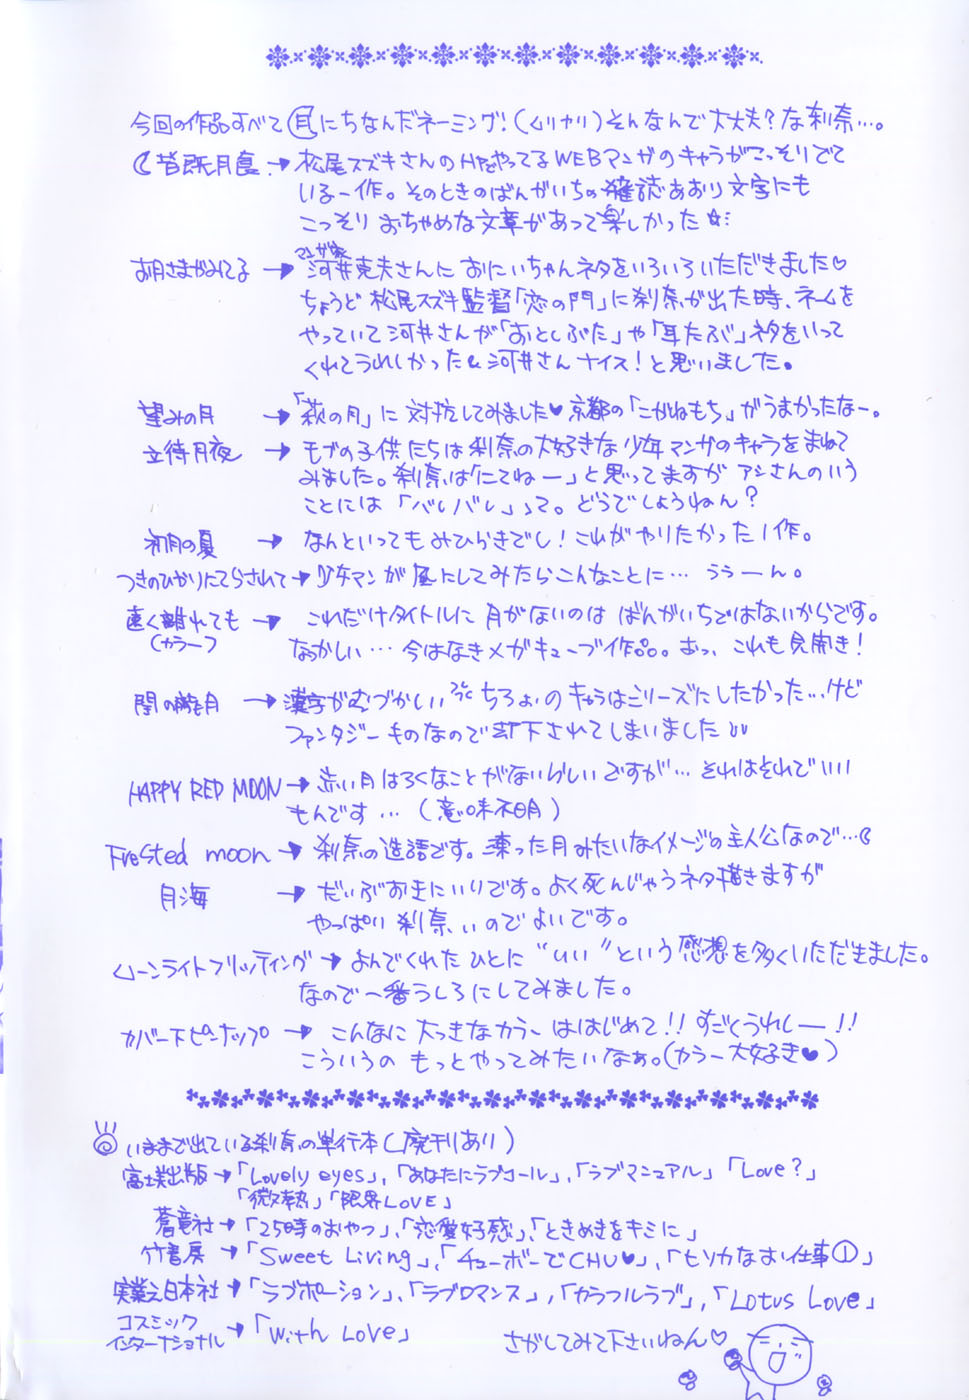 今回の作品すべて月にちなんだネーミング!(ムリヤリ)そんなんで大丈夫?な刹奈…。
皆既月食. → 松尾スズキさんのHPでやってるWEBマンガのキャラがこっそりでて
いる一作。そのときのばんがいちの雑誌あおり文字にも
こっそり おちゃめな文章があって楽しかった☆
お月さまがみてる → マンガ家 河井克夫さんに おにいちゃんネタをいろいろいただきました♡
ちょうど 松尾スズキ監督「恋の門」に刹奈が出た時、ネームを
やっていて河井さんが「おとしぶた」や「耳たぶ」ネタをいって
くれてうれしかった 河井さん ナイス!と思いました。
望みの月 → 「萩の月」に 対抗してみました♥ 京都の「こがねもち」がうまかったなー。
立待月夜 → モブの子供たちは刹奈の大好きな少年マンガのキャラをまねて
みました。刹奈は「にてねー」と思ってますが アシさんのいう
ことには「バレバレ」って。どうでしょうねん?
初月の夏 → なんといってもみひらきでし!これがやりたかった1作。
つきのひかりにてらされて → 少年マンガ風にしてみたらこんなことに… ううーん。
遠く離れても → これだけタイトルに月がないのは ばんがいちではないからです。
(カラー) なつかしい… 今はなきメガキューブ作品。おっ、これも見開き!
閏の朧月 → 漢字がむづかしい ちろょいのキャラはシリーズにしたかった…けど
ファンタジーものなので却下されてしまいました
HAPPY RED MOON → 赤い月はろくなことがないらしいですが… それはそれでいい
もんです…(意味不明)
FresTed moon → 刹奈の造語です。凍った月みたいなイメージの主人公なので…
月海 → だいぶおきにいりです。よく死んじゃうネタ描きますが
やっぱり 刹奈、いのでよいです。
ムーンライトフリッティング → よんでくれたひとに "いい" という感想を多くいただきました。
なので一番うしろにしてみました。
カバー下ピンナップ → こんなに大っきなカラーははじめて!! すごくうれしー!!
こういうの もっとやってみたいなぁ。(カラー大好き♥)
いままで出ている刹奈の単行本(廃刊あり)
富士美出版→「Lovely eyes」,「あなたにラブコール」,「ラブマニュアル」「Love?」
「微熱」「限界LOVE」
蒼竜社→「25時のおやつ」,「恋愛好感」,「ときめきをキミに」
竹書房→「Sweet Living」,「チューボーでCHU♥」,「ヒソカなお仕事①」
実業之日本社→「ラブポーション」,「ラブロマンス」,「カラフルラブ」,「Lotus Love」
コスミック
インターナショナル→「With Love」 さがしてみて下さいねん♡